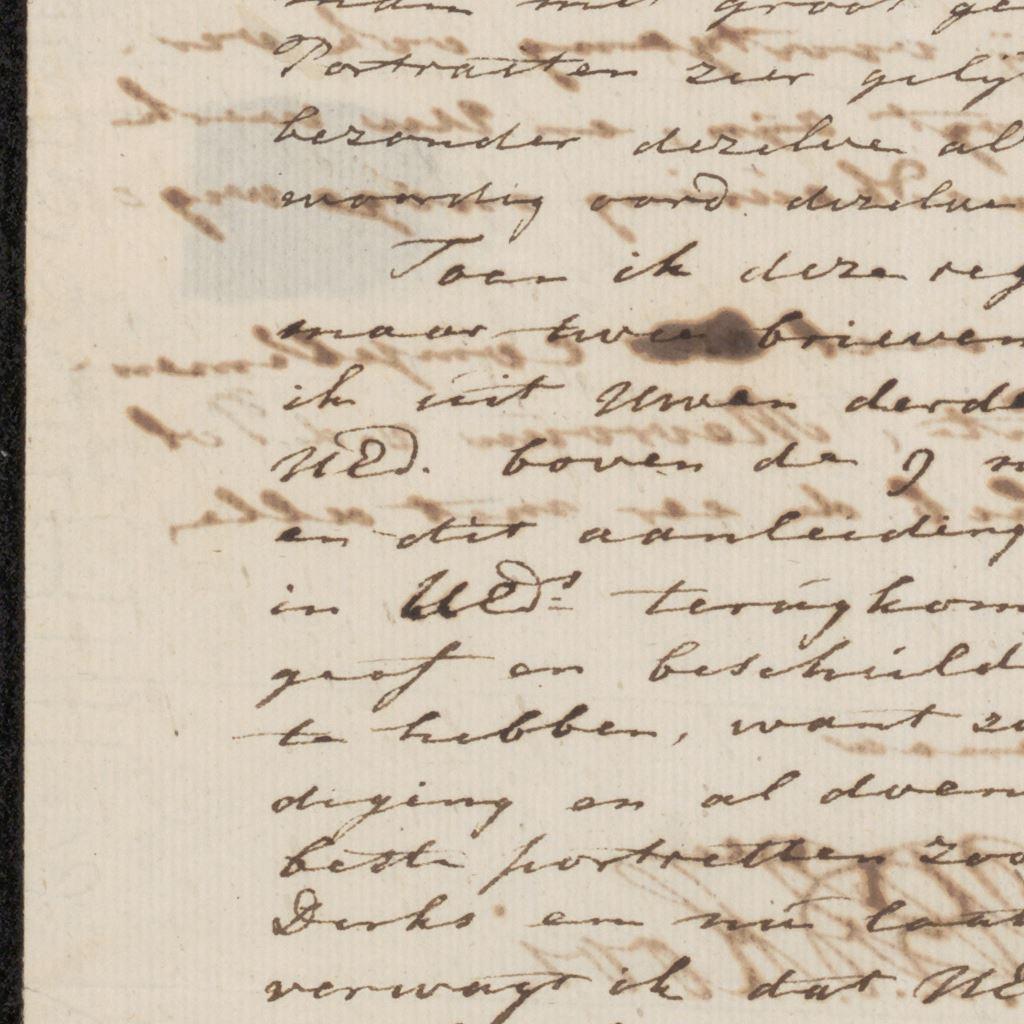 man met groot ge
Portraiten zeer gelij
bezonder dezelve al
envoordig oord dezelve
Toen ik deze reg
maar twee brieven
ik uit Uwen derde
UEd. boven de 9 m
en dit aanleiding
in UEds terugkom
grof en beschuld
te hebben, want zo
diging en al doen
beste portretten zoo
Derks en nu laat
verwagt ik dat UE